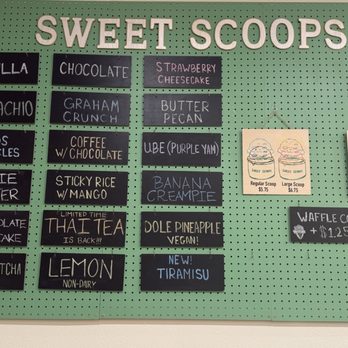 SWEET SCOOPS
CHOCOLATE
STRAWBERRY
CHEESECAKE
GRAHAM
CRUNCH
BUTTER
PECAN
COFFEE
W/ CHOCOLATE
UBE (PURPLE YAM)
STICKY RICE
W/ MANGO
BANANA
CREAMPIE
LIMITED TIME
THAI TEA
IS BACK!!!
DOLE PINEAPPLE
VEGAN!
LEMON
NON-DAIRY
NEW!
TIRAMISU
Regular Scoop
$5.75
Large Scoop
$6.75
WAFFLE CO
+ $1.25